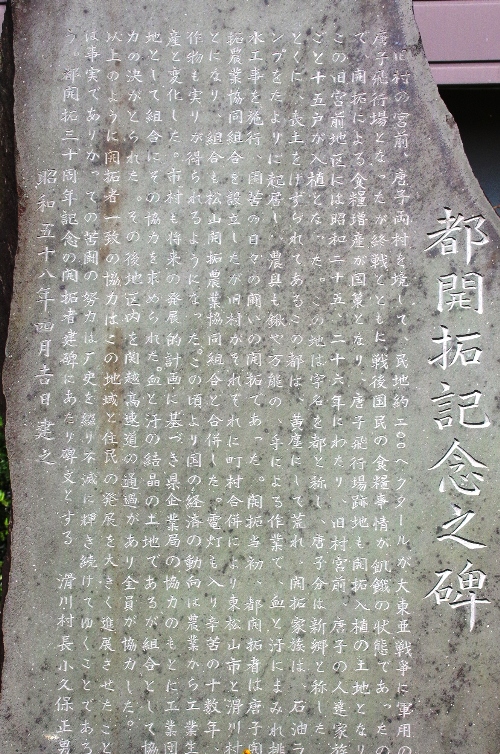 都開拓記念之碑
旧村の宮前、唐子両村を境して、民地約二〇〇ヘクタールが大東亜戦争に軍用
唐子飛行場となったが終戦とともに戦後国民の食糧事情が飢餓の状態であったの
で、開拓による食糧増産が国策となり、唐子飛行場跡地も開拓入植の土地となり
この旧宮前地区には昭和二十五、二十六年にわたり、旧村宮前、唐子の人達家族
ごと十五戸が入植となった。この地は字名を都と称し、唐子分は新郷と称した
とくに、表土をけずられてあるこの都は、黄塵にして荒れ、開拓家族は、石油ラ
ンプをたよりに起居し、農具も鍬や万能の、手による作業で、血と汗にまみれ排
水工事を施行、開苦の日々の闘いの開拓であった。開拓当初、都開拓者は唐子開
拓農業協同組合を設立したが旧村がそれぞれに町村合併により東松山市と滑川村
とになり、組合も松山開拓農業協同組合と合併した。電灯も入り辛苦の十数年、
作物も実りが得られるようになった。この頃より国の経済の動向は農業から工業生
産と変化した。市村も将来の発展的計画に基づき県企業局の協力のもとに工業団
地として組合にその協力を求められた。血と汗の結晶の土地であるが組合として協
力の決がとられた。その後地区内を関越高速道の通過があり全員が協力した。
以上のように開拓者一致の協力はこの地域と住民の発展を大きく進展させたこと
は事実でありかつての苦闘の努力は歴史を綴り不滅に輝き続けてゆくことであろ
う。都開拓三十周年記念の開拓者建碑にあたり碑文とする　滑川村長小久保正男
昭和五十八年四月吉日　建之